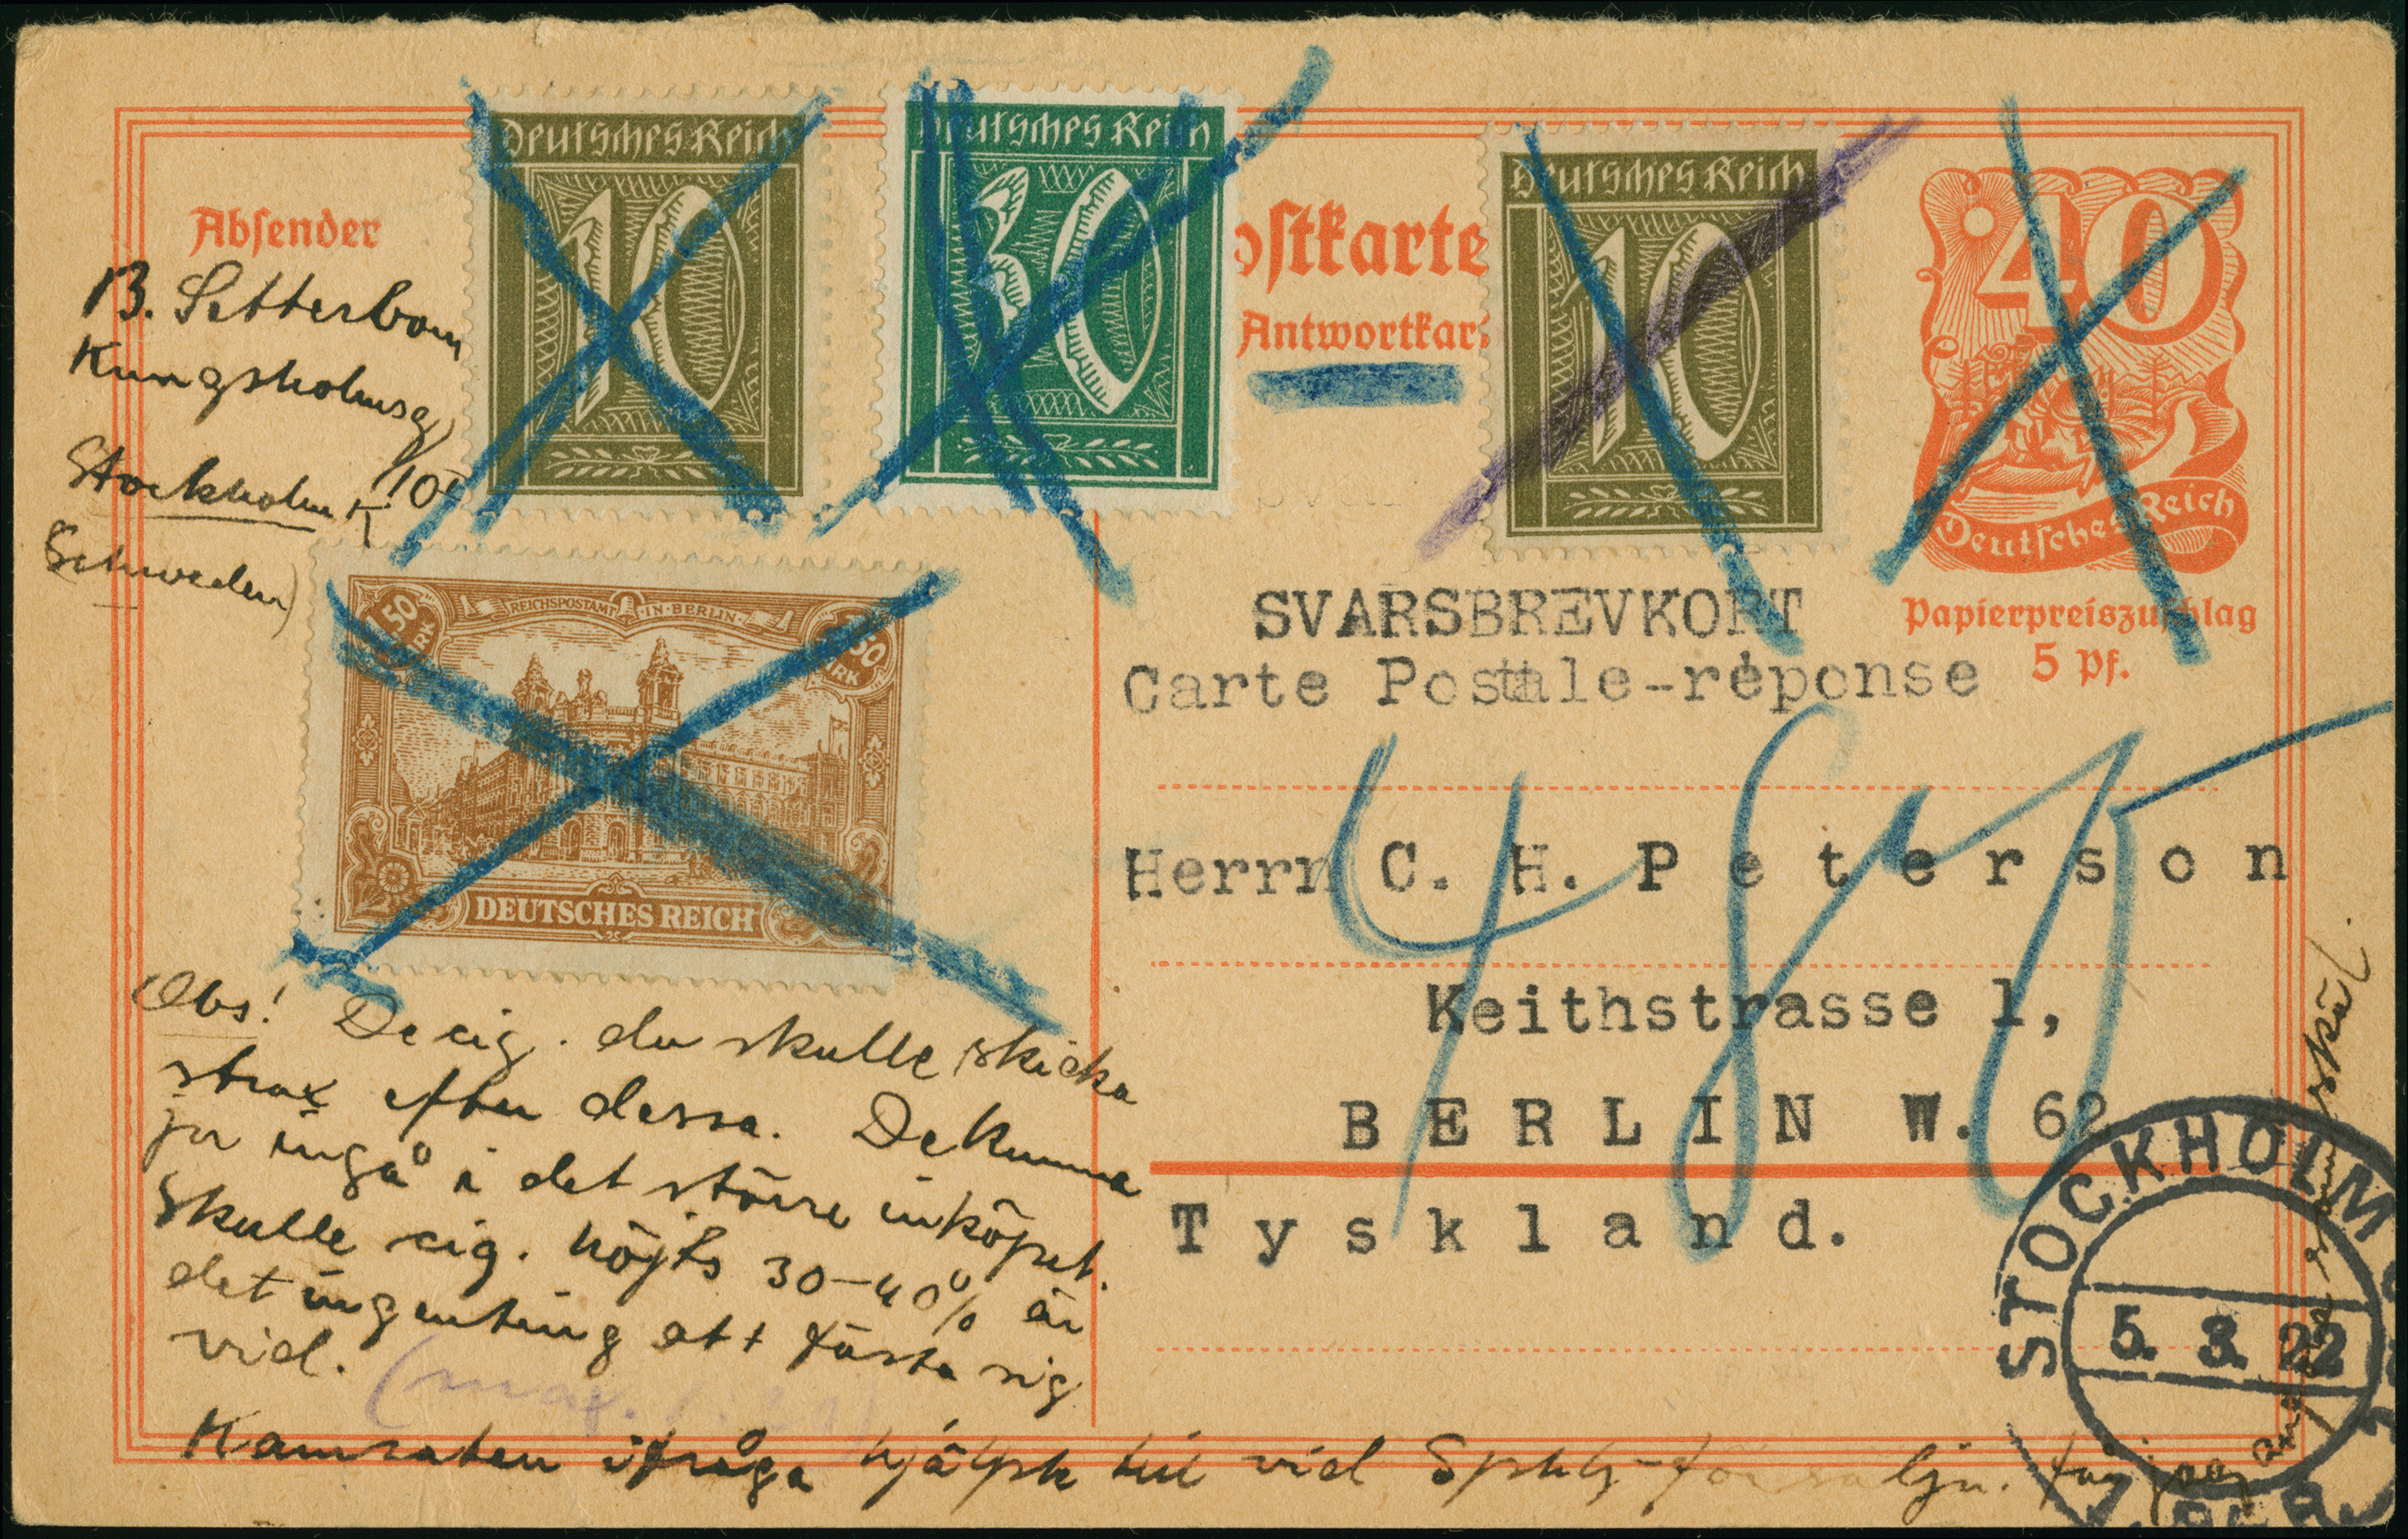 Absender
B. Setterbom
Kungsholmsg
10
Stockholm K
Schweden)
Deutsches Reich
10
Deutsches Reich
60
Postkarte
Antwortkart
Deutsches Reich
10
40
Deutsches Reich
Papierpreiszuschlag
5 Pf.
1,50 MARK
REICHSPOSTAMT IN BERLIN
1,50 MARK
DEUTSCHES REICH
SVARSBREVKORT
Carte Postale-réponse
Herrn C. H. Peterson
Keithstrasse 1,
BERLIN W. 62
Tyskland.
STOCKHOLM
5. 3. 22
Obs! De cig. du skulle skicka
strax efter dessa. De kunna
ju ingå i det större inköpet.
Skulle cig. höjts 30-40% är
det ingenting att fästa sig
vid.
(max.
Kamraten ifråga hjälpte till vid försäljn. får jag
skål.